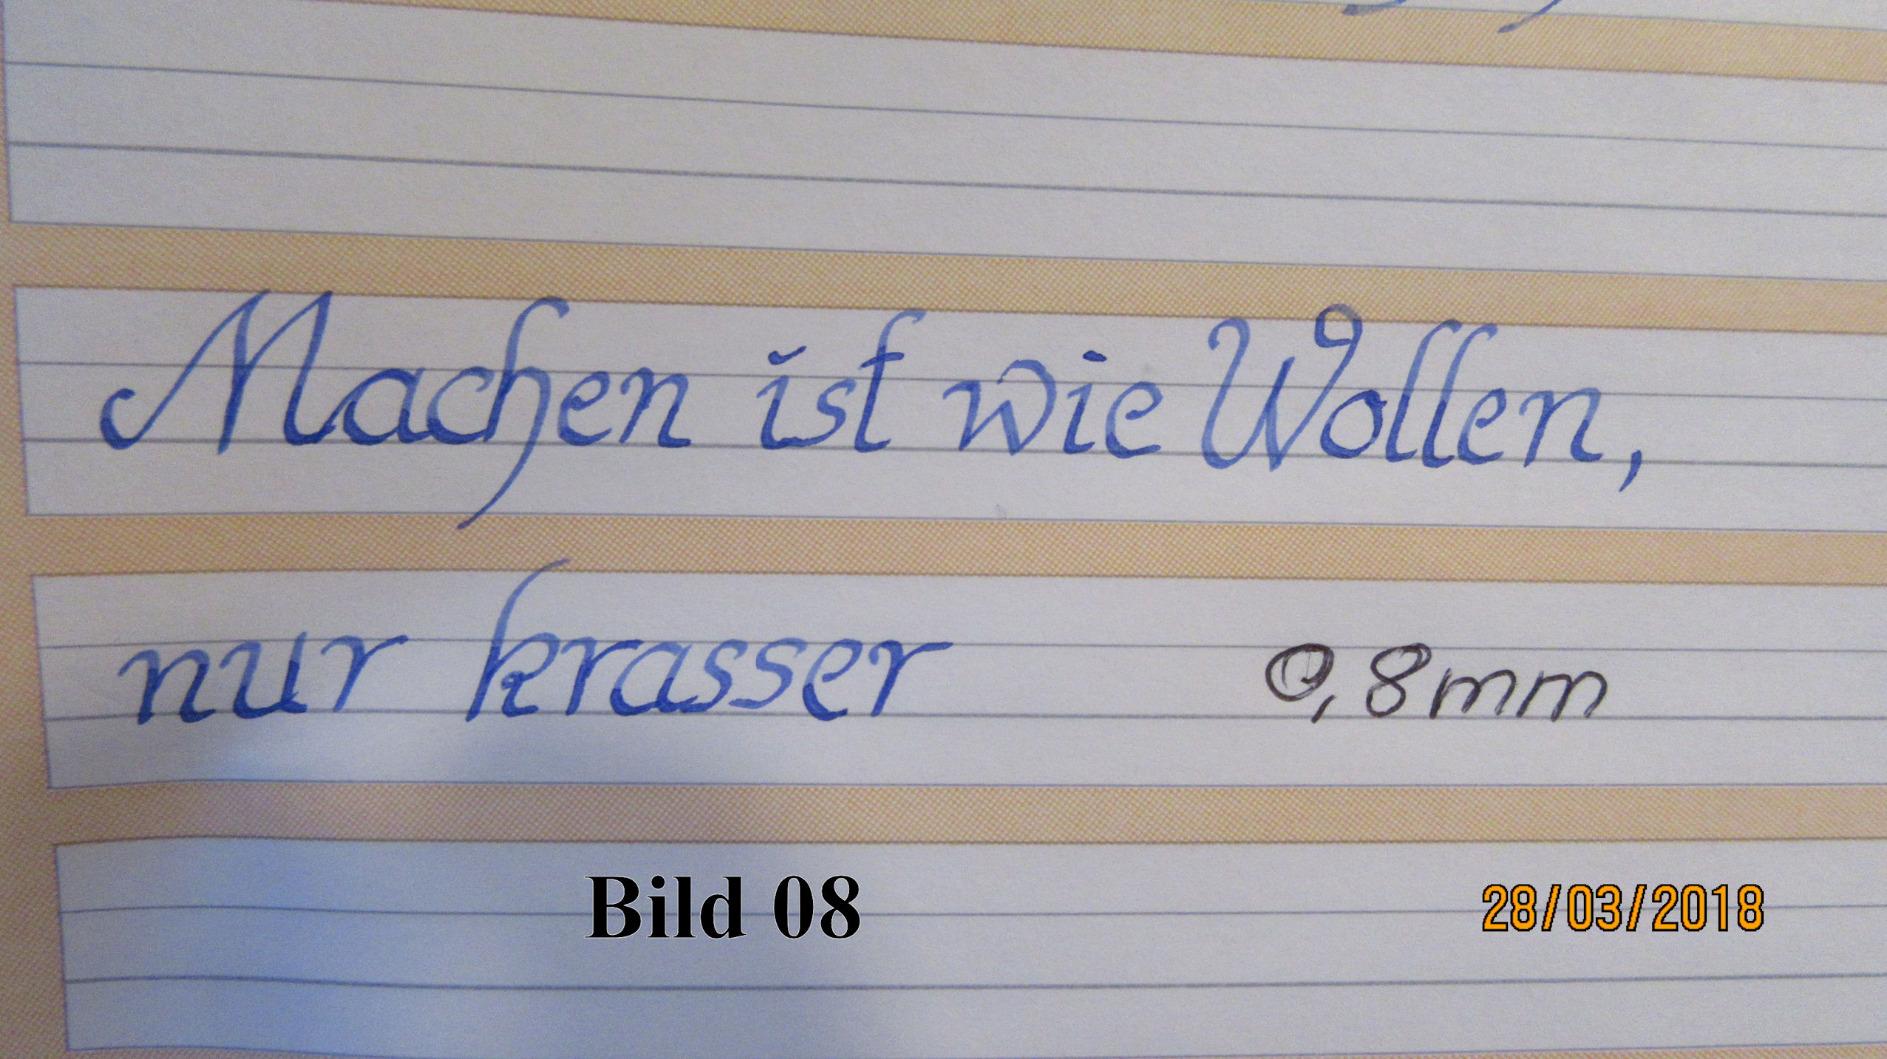 Machen ist wie Wollen,
nur krasser 0,8mm
Bild 08 28/03/2018